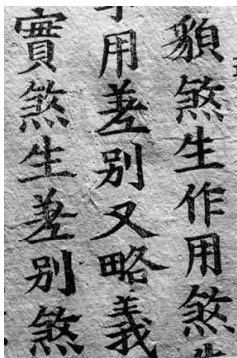 煞生作用煞
用差別又略義
實煞生差別煞